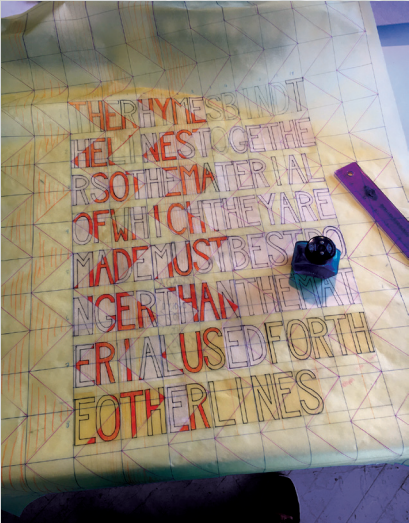 THERHYMESBINDT
HELINESTOGETHE
RSOTHEMATERIAL
OFWHICHTHEYARE
MADEMUSTBESTRO
NGERTHANTHEMAT
ERIALUSEDFORTH
EOTHERLINES